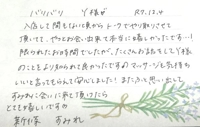 バリバリ Y様が R7.12.4
入店して間もない頃からトークでやり取りさせて
頂いてて、やっとお会い出来て本当に嬉しかったです…!
限られたお時間でしたが、たくさんおはなししてY様
のことをより知れて良かったですのマッサージも気持ち
いいと言ってもらえて安心しました! またお互い思い出して
すみれに会いに来て頂けたら
とても嬉しいです
新人 すみれ